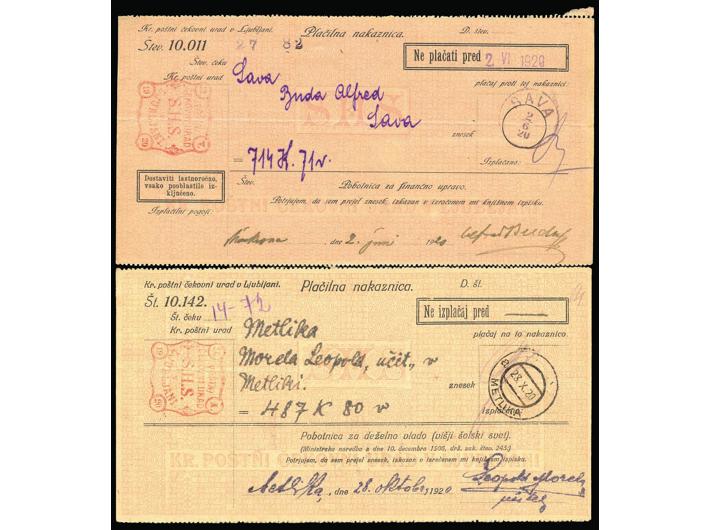 Kr. poštni čekovni urad v Ljubljani. Plačilna nakaznica. D. štev.
Štev. 10.011 27 82
Ne plačati pred 2 VI 1920
Štev. čeku
Kr. poštni urad Sava plačaj proti tej nakaznici:
Buda Alfred
Sava
SAVA
znesek
= 714 K. 71 v. Izplačano:
S.H.S.
Štev. Pobotnica za finančno upravo.
Dostaviti lastnoročno,
vsako pooblastilo iz-
ključeno.
Potrjujem, da sem prejel znesek, izkazan v izročenem mi knjižnem izpisku.
Izplačilni pogoji:
dne 2. juni 1920
Kr. poštni čekovni urad v Ljubljani. Plačilna nakaznica. D. št.
Št. 10.142.
Ne izplačaj pred
Št. čeku 14-72
Kr. poštni urad Metlika plačaj na to nakaznico
Morela Leopold, učit., v
Metliki. znesek
METLIKA
28.X.20
S.H.S.
= 487 K 80 v izplačano:
Pobotnica za deželno vlado (višji šolski svet).
(Ministrska naredba z dne 10. decembra 1906, drž. zak. štev. 243.)
Potrjujem, da sem prejel znesek, izkazan v izročenem mi knjižnem izpisku.
Metlika, dne 28. oktobr 1920